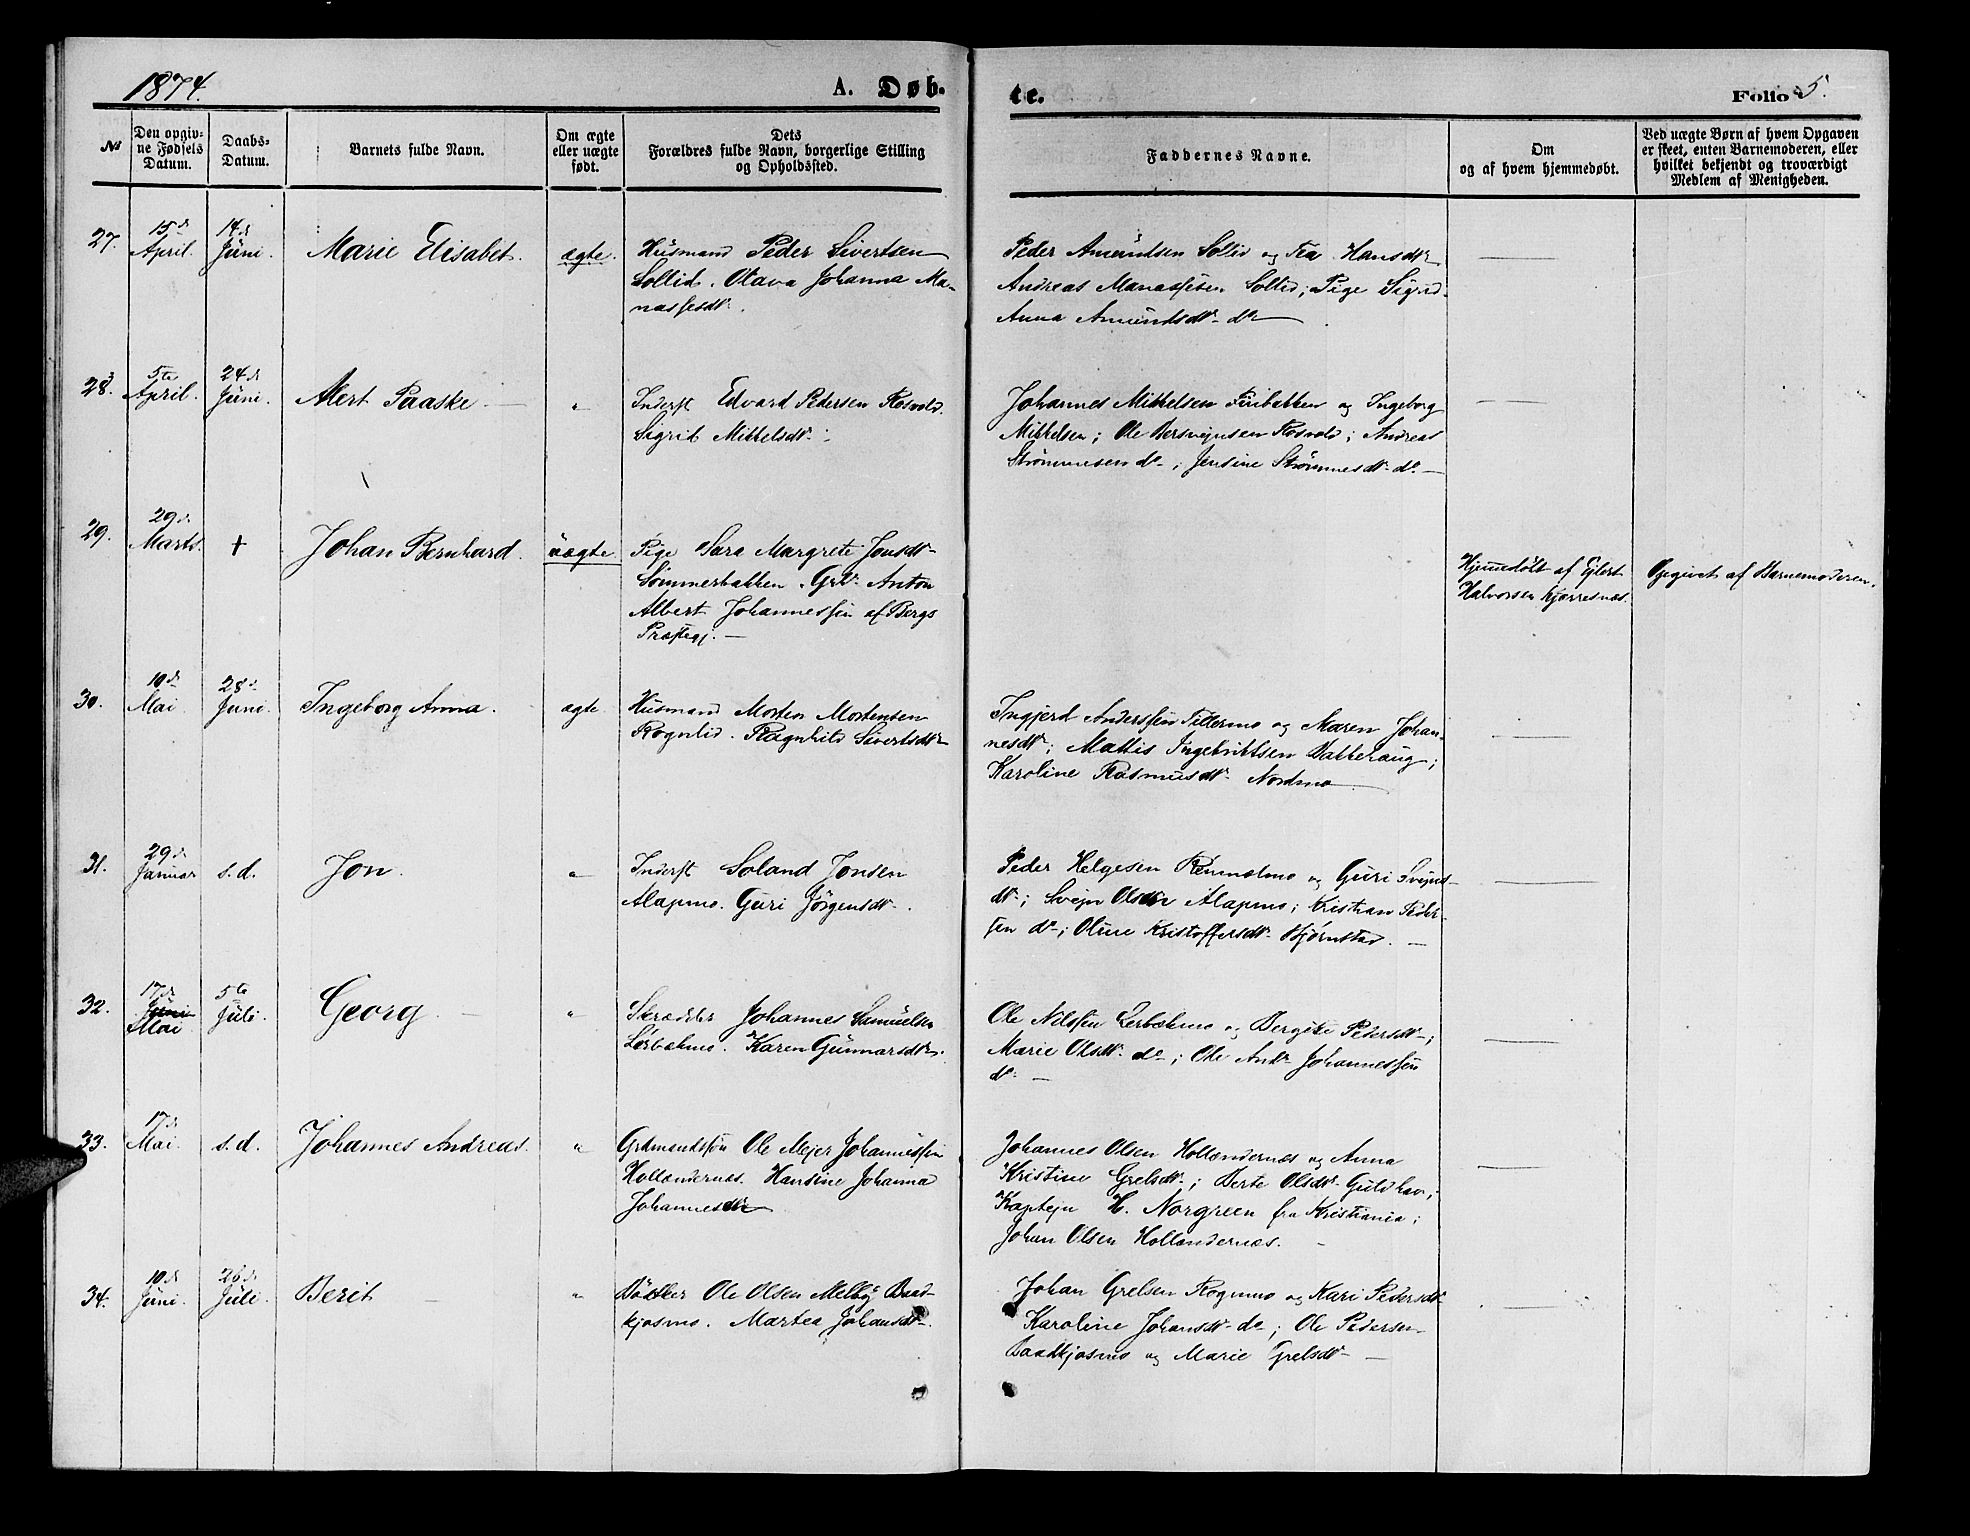 1874.
A. Døb-
te.
Folio 5.
No
Den opgiv-
ne Fødsels
Datum.
Daabs-
Datum.
Barnets fulde Navn.
Om ægte
eller uægte
født.
Dets
Forældres fulde Navn, borgerlige Stilling
og Opholdssted.
Faddernes Navne.
Om
og af hvem hjemmedøbt.
Ved uægte Børn af hvem Opgaven
er skeet, enten Barnemoderen, eller
hvilket bekjendt og troværdigt
Medlem af Menigheden.
27.
15de
April.
14de
Juni.
Marie Elisabet.
ægte.
Husmand Peder Sivertsen
Sollid. Olava Johanna Ma-
nassesdtr.
Peder Amundsen Sollid og Tea Hansdtr
Andreas Manassesen Sollid; Pige Sigrid
Anna Amundsdtr do
28.
5te
April.
24de
Juni.
Alert Paaske
"
Inderst Edvard Pedersen Rosvold.
Sigrit Mikkelsdtr.
Johannes Mikkelsen og Ingeborg
Mikkelsen; Ole Bersvejnsen Rosvold; Andreas
Strømmesen do; Jensine Strømmesdtr do.
29.
29de
Marts.
+
Johan Bernhard.
uægte
Pige Sara Margrete Jonsdtr
Sommerbakken. Grbr. Anton
Albert Johannessen af Bergs
Præstegj.
Hjemmedøbt af Ejlert
Halvorsen Kjerresnæs.
Opgivet af Barnemoderen.
30.
10de
Mai.
28de
Juni.
Ingeborg Anna.
ægte
Husmand Morten Mortensen
Rognlid. Ragnhild Sivertsdtr
Ingjerd Anderssen Fellermo og Maren Johan-
nesdtr; Mattis Ingebriktsen Bakkehaug;
Karoline Rasmusdtr Nordmo
31.
29de
Januar
s.d.
Jon.
"
Inderst Soland Jonsen
Alapmo. Guri Jørgensdtr.
Peder Helgesen Renmælmo og Guri Svejns-
dtr; Svejn Olsen Alapmo; Kristian Peder-
sen do; Oline Kristoffersdtr Bjørnstad.
32.
17de
Juni
Mai
5te
Juli.
Georg
"
Skrædder Johannes Samuelsen
Lerbækmo. Karen Gunnarsdtr.
Ole Nilssen Lerbækmo og Bergite Pedersdtr;
Marie Olsdtr do; Ole Andr. Johannessen
do
33.
17de
Mai.
s.d.
Johannes Andreas.
"
Grdmandssøn Ole Mejer Johannessen
Hollændernæs. Hansine Johanna
Johannesdtr
Johannes Olsen Hollændernæs og Anna
Kristine Grelsdtr; Berte Olsdtr Guldhav;
Kaptejn H. Norgreen fra Kristiania;
Johan Olsen Hollændernæs.
34.
10de
Juni.
26de
Juli.
Berit
"
Bødker Ole Olsen Melby Baad-
kjosmo. Martea Johansdtr.
Johan Grelsen Rognmo og Kari Pedersdtr
Karoline Johansdtr do; Ole Pedersen
Baadkjosmo og Marie Grelsdtr